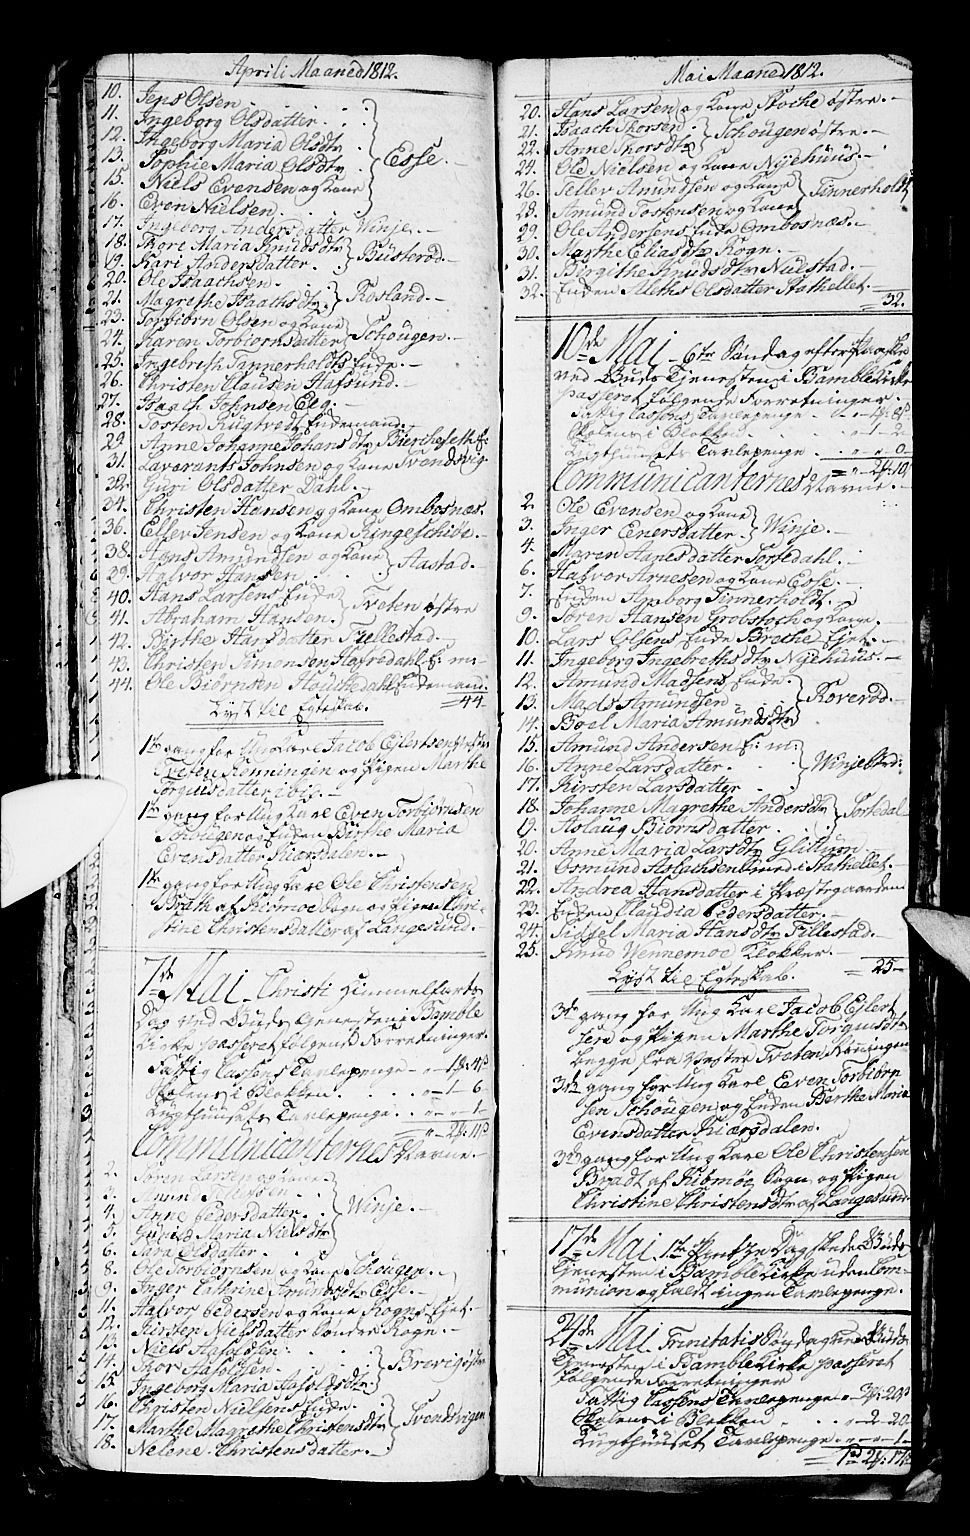 Aprili Maaned 1812.
10. Jens Olsen
11. Ingeborg Olsdatter
12. Ingeborg Maria Olsdtr
13. Sophie Maria Olsdtr Esse.
15. Niels Evensen og Kone
16. Even Nielsen
17. Ingeborg Andersdatter Winje.
18. Tore Maria Knudsdtr
19. Kari Andersdatter. Busterød.
20. Ole Isaachsen
21. Magrethe Isaachsdtr Rosland.
23. Torbiørn Olsen og Kone
24. Karen Torbiørnsdatter Schougen.
25. Ingebreth Tinnerholdts Enke.
26. Christen Clausen Hafsund.
27. Isaach Johnsen Eeg.
28. Tosten Rugtvedt Enkemand.
29. Anne Johanne Johansdtr Bierchesett
31. Lavrants Johnsen og Kone Trondsvig
32. Guri Olsdatter Dahl.
34. Christen Hansen og Kone Ombosnæs.
36. Ellef Jensen og Kone Ringeschiøe.
38. Hans Amundsen og Kone
39. Halvor Hansen Aastad.
40. Hans Larsens Enke
41. Abraham Hansen Tveten østre
42. Birthe Hansdatter Fiellestad.
43. Christen Simonsen Hafredahl E: m:
44. Ole Biørnsen Houchedahl Enkemand.
44.
Lyst til Egteskab.
1te gang for Ung Karl Jacob Ejlertsen Vestre
Tveten Rønningen og Pigen Marthe
Torgusdatter ibid.
1te gang for Ung Karl Even Torbiørnsen
Schougen og Enken Birthe Maria
Evensdatter Kiærsdalen.
1te gang for Ung Karl Ole Christensen
Bradt af Eidmoe Sogn og Pigen Chri-
stine Christensdatter af Langesund.
7de Mai Christi Himmelfarts
Dag ved Guds Tjenesten i Bamble
Kirke passeret følgende Forretninger
Fattig Cassens Tavlepenge
Skolens i Blokken 1 6
Tugthusets Tavlepenge 1
Communicanternes Navne.
2. Søren Larsen og Kone
4. Anne Pedersdatter Winje.
5. Gunild Maria Nielsdtr
6. Sara Olsdatter
8. Ole Torbiørnsen og Kone Schougen.
9. Inger Cathrine Amundsdtr Esse.
11. Halvor Pedersen og Kone Rogns Ejet.
12. Kirsten Nielsdatter Søndre Rogn.
13. Niels Halvorsen
14. Thor Halvorsen Brevig østre
15. Ingeborg Maria Halvorsdtr
16. Christen Nielsens Enke.
17. Marthe Magrethe Christensdtr Trondsvigen
18. Nelene Christensdatter.
Mai Maaned 1812.
20. Hans Larsen og Kone Stoche østre.
21. Isaach Thorsen
22. Anne Thorsdtr Schougen østre.
24. Ole Nielsen og Kone Nyehuus.
26. Tellev Amundsen og Kone
28. Amund Tostensen og Kone Tinnerholdt
29. Ole Andersens Enke Ombosnæs.
30. Marthe Eliasdtr Rogn.
31. Birgithe Knudsdtr Nustad.
32. Enken Aleths Olsdatter Stathellet.
32.
10de Mai 6te Søndag efter Paaske
ved Guds Tjenesten i Bamble Kirke
passeret følgende Forretninger.
Fattig Cassens Tavlepenge
Skolens i Blokken 1 2
Tugthusets Tavlepenge 0
Communicanternes Navne.
2. Ole Evensen og Kone
3. Inger Einersdatter Winje.
4. Maren Hansdatter Tortedahl.
6. Halvor Arnesen og Kone Esse.
7. Enken Anborg Tinnerholdt.
9. Søren Hansen Grobstoch og Kone.
10. Lars Olsens Enke Brethe Ejet.
11. Ingeborg Ingebrethsdtr Nyehuus.
12. Amund Madsens Enke.
13. Mads Amundsen Roverød.
14. Boel Maria Amundsdtr
15. Amund Andersen E: m:
16. Anne Larsdatter. Winje
17. Kirsten Larsdatter
18. Johanne Magrethe Andersdtr
19. Aslaug Biørnsdatter. Tortedal
20. Anne Maria Larsdtr Glittum
21. Osmund Aslachsen Svend i Stathellet.
22. Andrea Hansdatter i Præstegaarden
23. Enken Claudia Pedersdatter.
24. Sidsel Maria Hansdtr Fillestad.
25. Knud Wennemoe Klokker.
25
Lyst til Egteskab.
3die gang for Ung Karl Jacob Ejlert
sen og Pigen Marthe Torgusdtr
begge fra Vestre Tveten Rønningen
3die gang for Ung Karl Even Torbiørn
sen Schougen og Enken Berthe Maria
Evensdatter Kiærsdalen.
3die gang for Ung Karl Ole Christensen
Bradt af Eidmoe Sogn og Pigen
Christine Christensdtr af Langesund.
17de Mai 1te Pintze Dag skede Guds
Tjenesten i Bamble Kirke uden Com-
munion og faldt ingen Tavlepenge.
24de Mai Trinitatis Søndag ved Guds
Tjenesten i Bamble Kirke passeret
følgende Forretninger
Fattig Cassens Tavlepenge
Skolens i Blokken 2 20
Tugthuset Tavlepenge 1